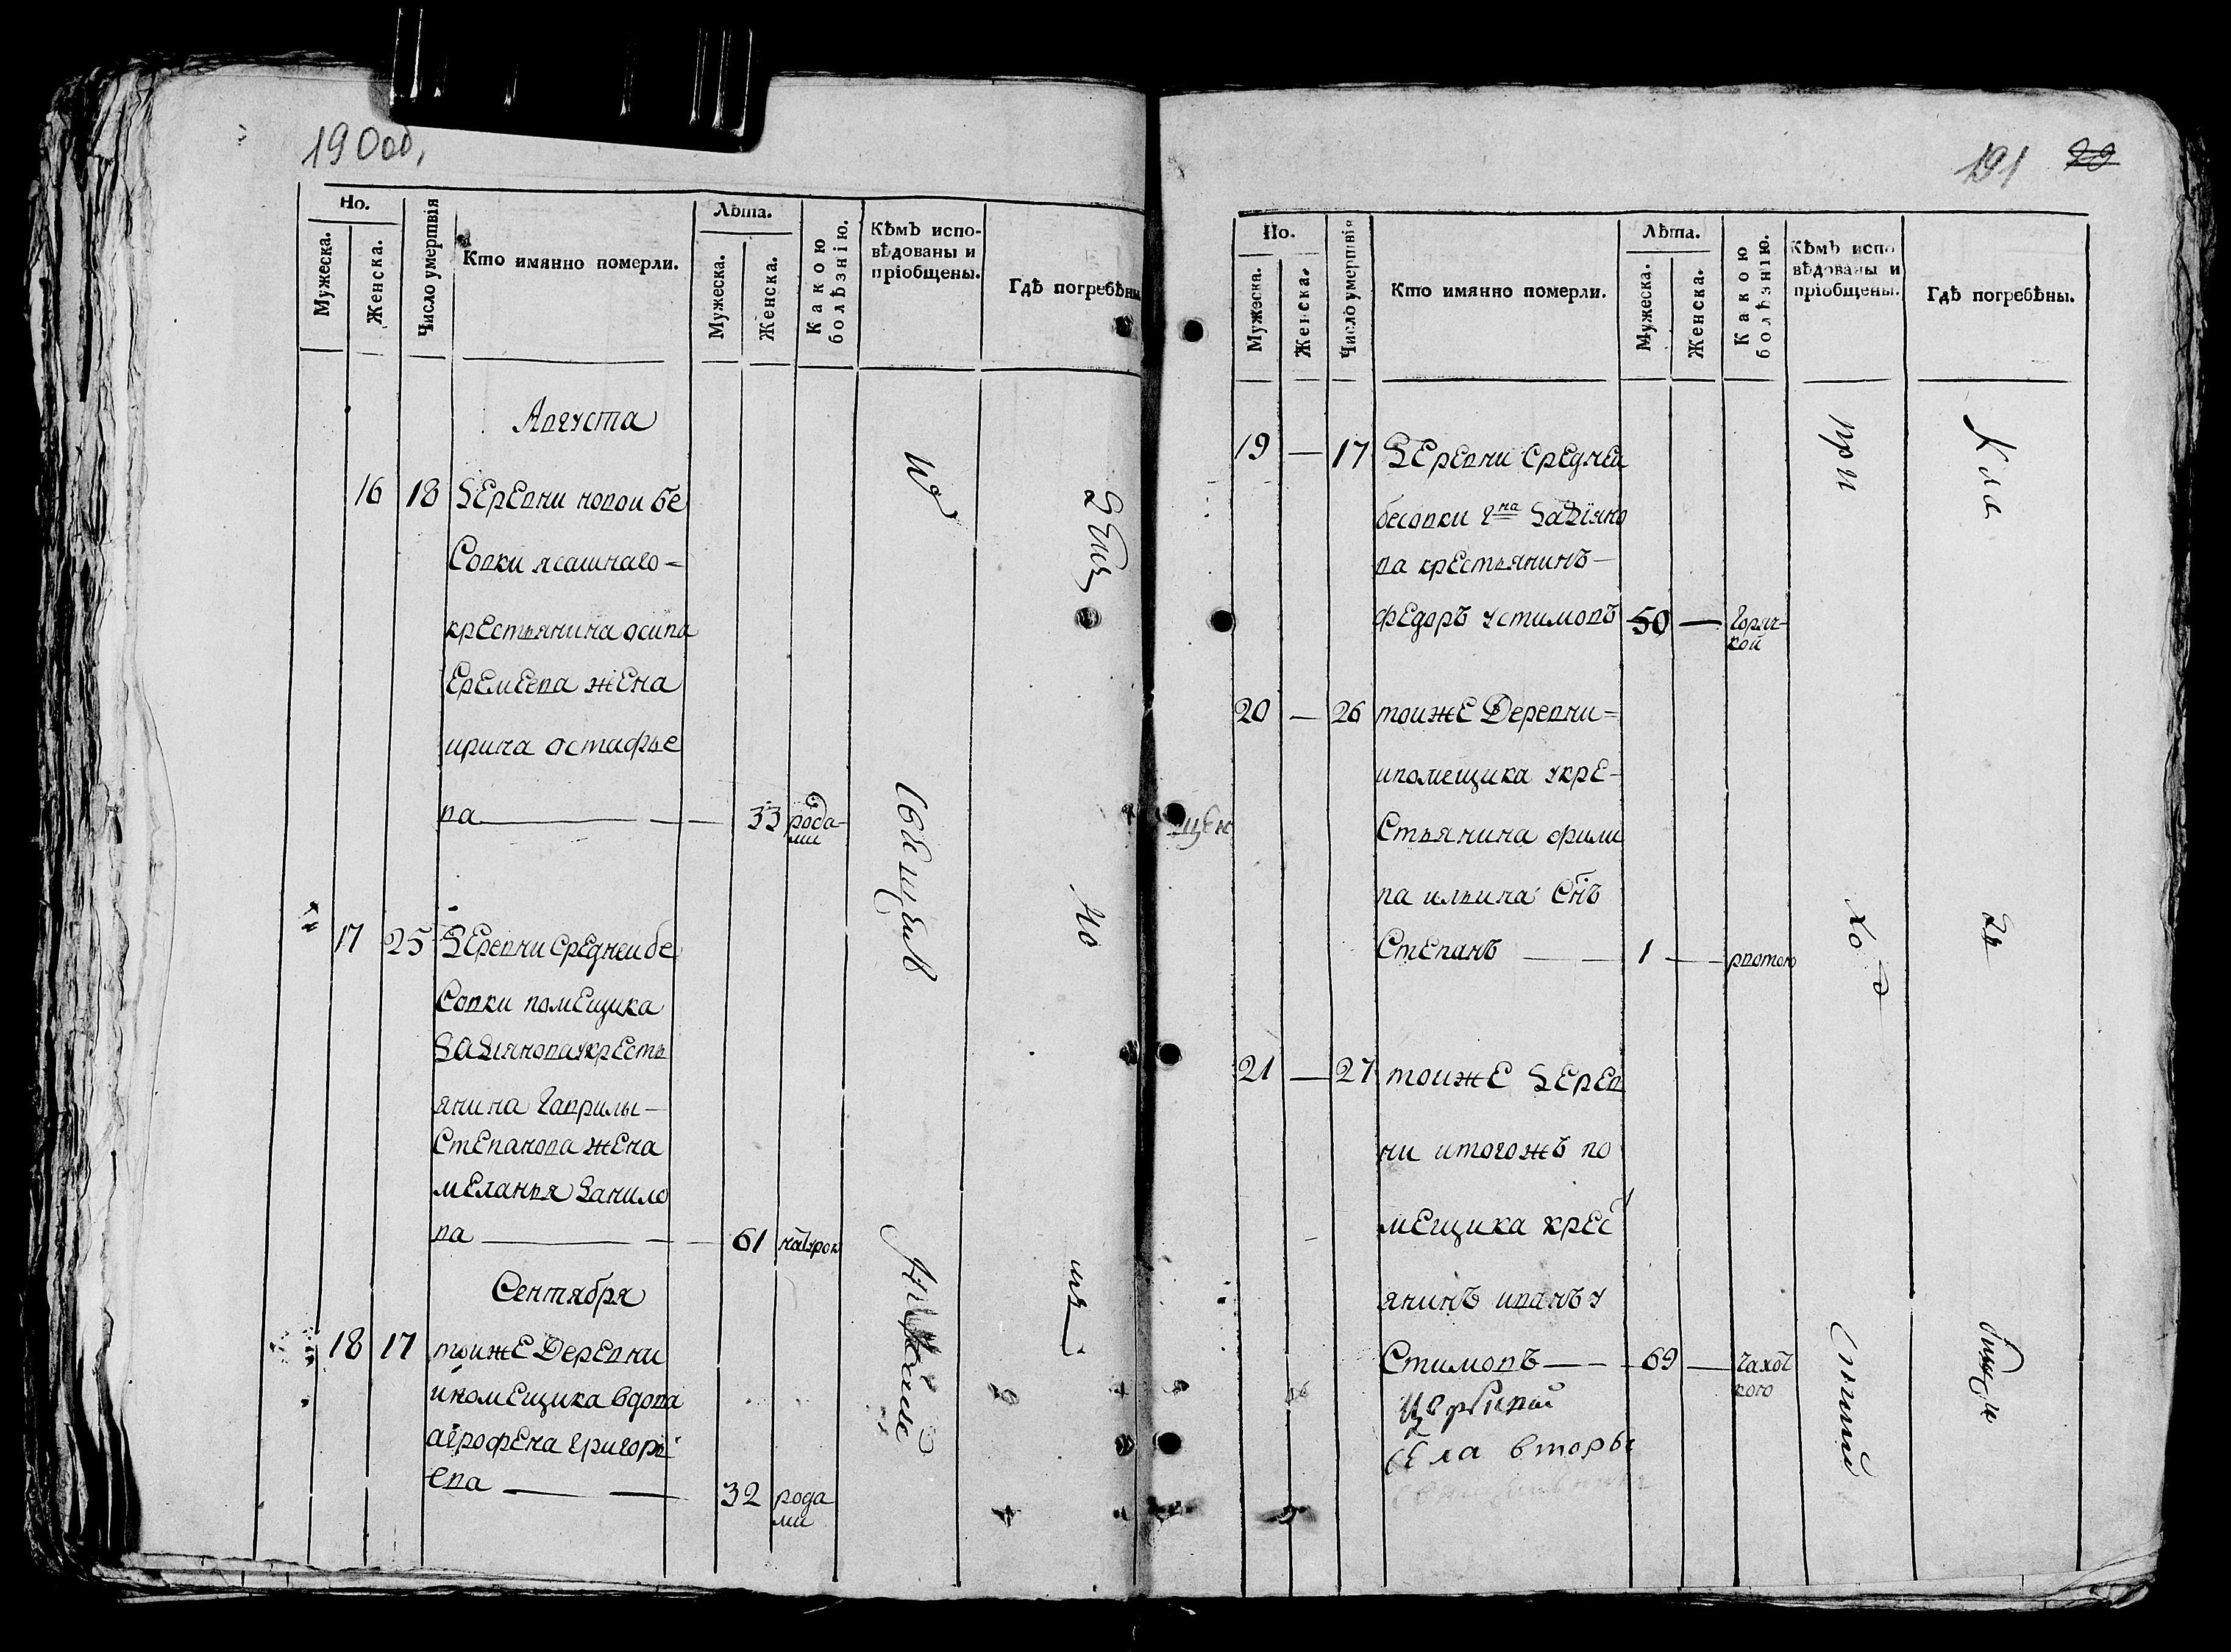 190 об.
Но.
Мужеска.
Женска.
Число умертвія
Кто имянно померли.
Лѣта.
Мужеска.
Женска.
Какою болѣзнію.
Кѣмъ испо-
вѣдованы и
пріобщены.
Гдѣ погребѣны
Августа
16 18 Деревни новои бе
Совки ясашнаго
крестьянина осипа
Еремеева жена
ирина остафье
ва 33 рода-
ми
17 25 Деревни Среднеи бе
Совки помещика
Дадіянова крестъ
янина Гаврилы
Степанова жена
меланья Данило
ва 61
Сентября
18 17 тоиже Деревни
ипомещика вдова
агрофена григорь
ева 32 рода
ми
191 20
Но.
Мужеска.
Женска.
Число умертвія
Кто имянно померли.
Лѣта.
Мужеска.
Женска.
Какою болѣзнію.
Кѣмъ испо
вѣдованы и
пріобщены.
Гдѣ погребѣны.
19 — 17 Деревни Среднеи
бесовки гна Дадіяно
ва крестьянинъ
федоръ устимовъ 50 — горяч-
кой
20 — 26 тоиже Деревни
ипомещика укре-
Стьянина фили
па ильина Снъ
Степанъ 1 — рвотою
21 — 27 тоиже Дерев
ни итогожъ по
мещика крес
янинъ иванъ у
Стимовъ 69 — чахот
кою
Села вторы
при
ход